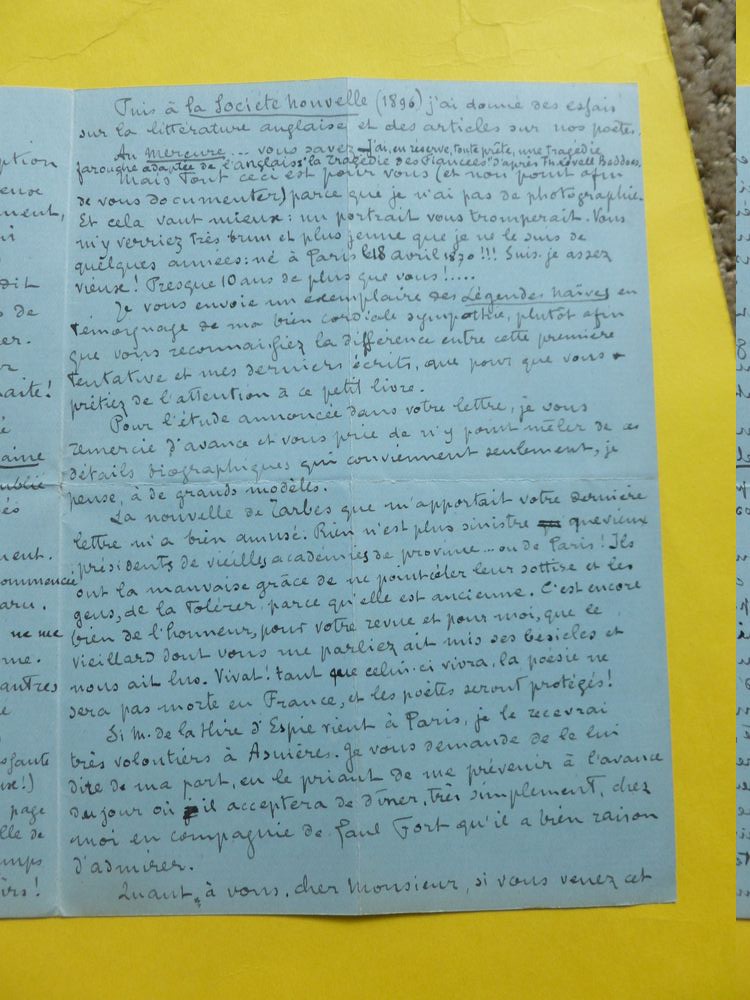 ption
ment,
dit
s de
er.
aite!
aine
ublié
és
ment.
commence
aru.
ne me
me.
antres
page
lle de
mps
irs!
Puis à la Société nouvelle (1896) j'ai donné des essais
sur la littérature anglaise et des articles sur nos poètes.
Au Mercure... vous savez. J'ai, en réserve, toute prête, une tragédie
farouche adaptée de l'anglais "la Tragédie des Fiancées" d'après Th. Lovell Beddoes.
Mais tout ceci est pour vous (et non point afin
de vous documenter) parce que je n'ai pas de photographie.
Et cela vaut mieux : un portrait vous tromperait. Vous
m'y verriez très brun et plus jeune que je ne le suis de
quelques années: né à Paris le 18 avril 1870 !!! Suis-je assez
vieux! Presque 10 ans de plus que vous!....
Je vous envoie un exemplaire des Légendes naïves en
témoignage de ma bien cordiale sympathie, plutôt afin
que vous reconnaissiez la différence entre cette première
tentative et mes derniers écrits, que pour que vous
prêtiez de l'attention à ce petit livre.
Pour l'étude annoncée dans votre lettre, je vous
remercie d'avance et vous prie de n'y point mêler de ces
détails biographiques qui conviennent seulement, je
pense, à de grands modèles.
La nouvelle de Tarbes que m'apportait votre dernière
lettre m'a bien amusé. Rien n'est plus sinistre que vieux
présidents de vieilles académies de province... ou de Paris! Ils
ont la mauvaise grâce de ne point céler leur sottise et les
gens, de la tolérer parce qu'elle est ancienne. C'est encore
bien de l'honneur, pour votre revue et pour moi, que le
vieillard dont vous me parliez ait mis ses besicles et
nous ait lus. Vivat! tant que celui-ci vivra, la poésie ne
sera pas morte en France, et les poètes seront protégés!
Si M. de la Hire d'Espie vient à Paris, je le recevrai
très volontiers à Asnières. Je vous demande de le lui
dire de ma part, en le priant de me prévenir à l'avance
du jour où il acceptera de dîner, très simplement, chez
moi en compagnie de Paul Fort qu'il a bien raison
d'admirer.
Quant, à vous, cher Monsieur, si vous venez cet